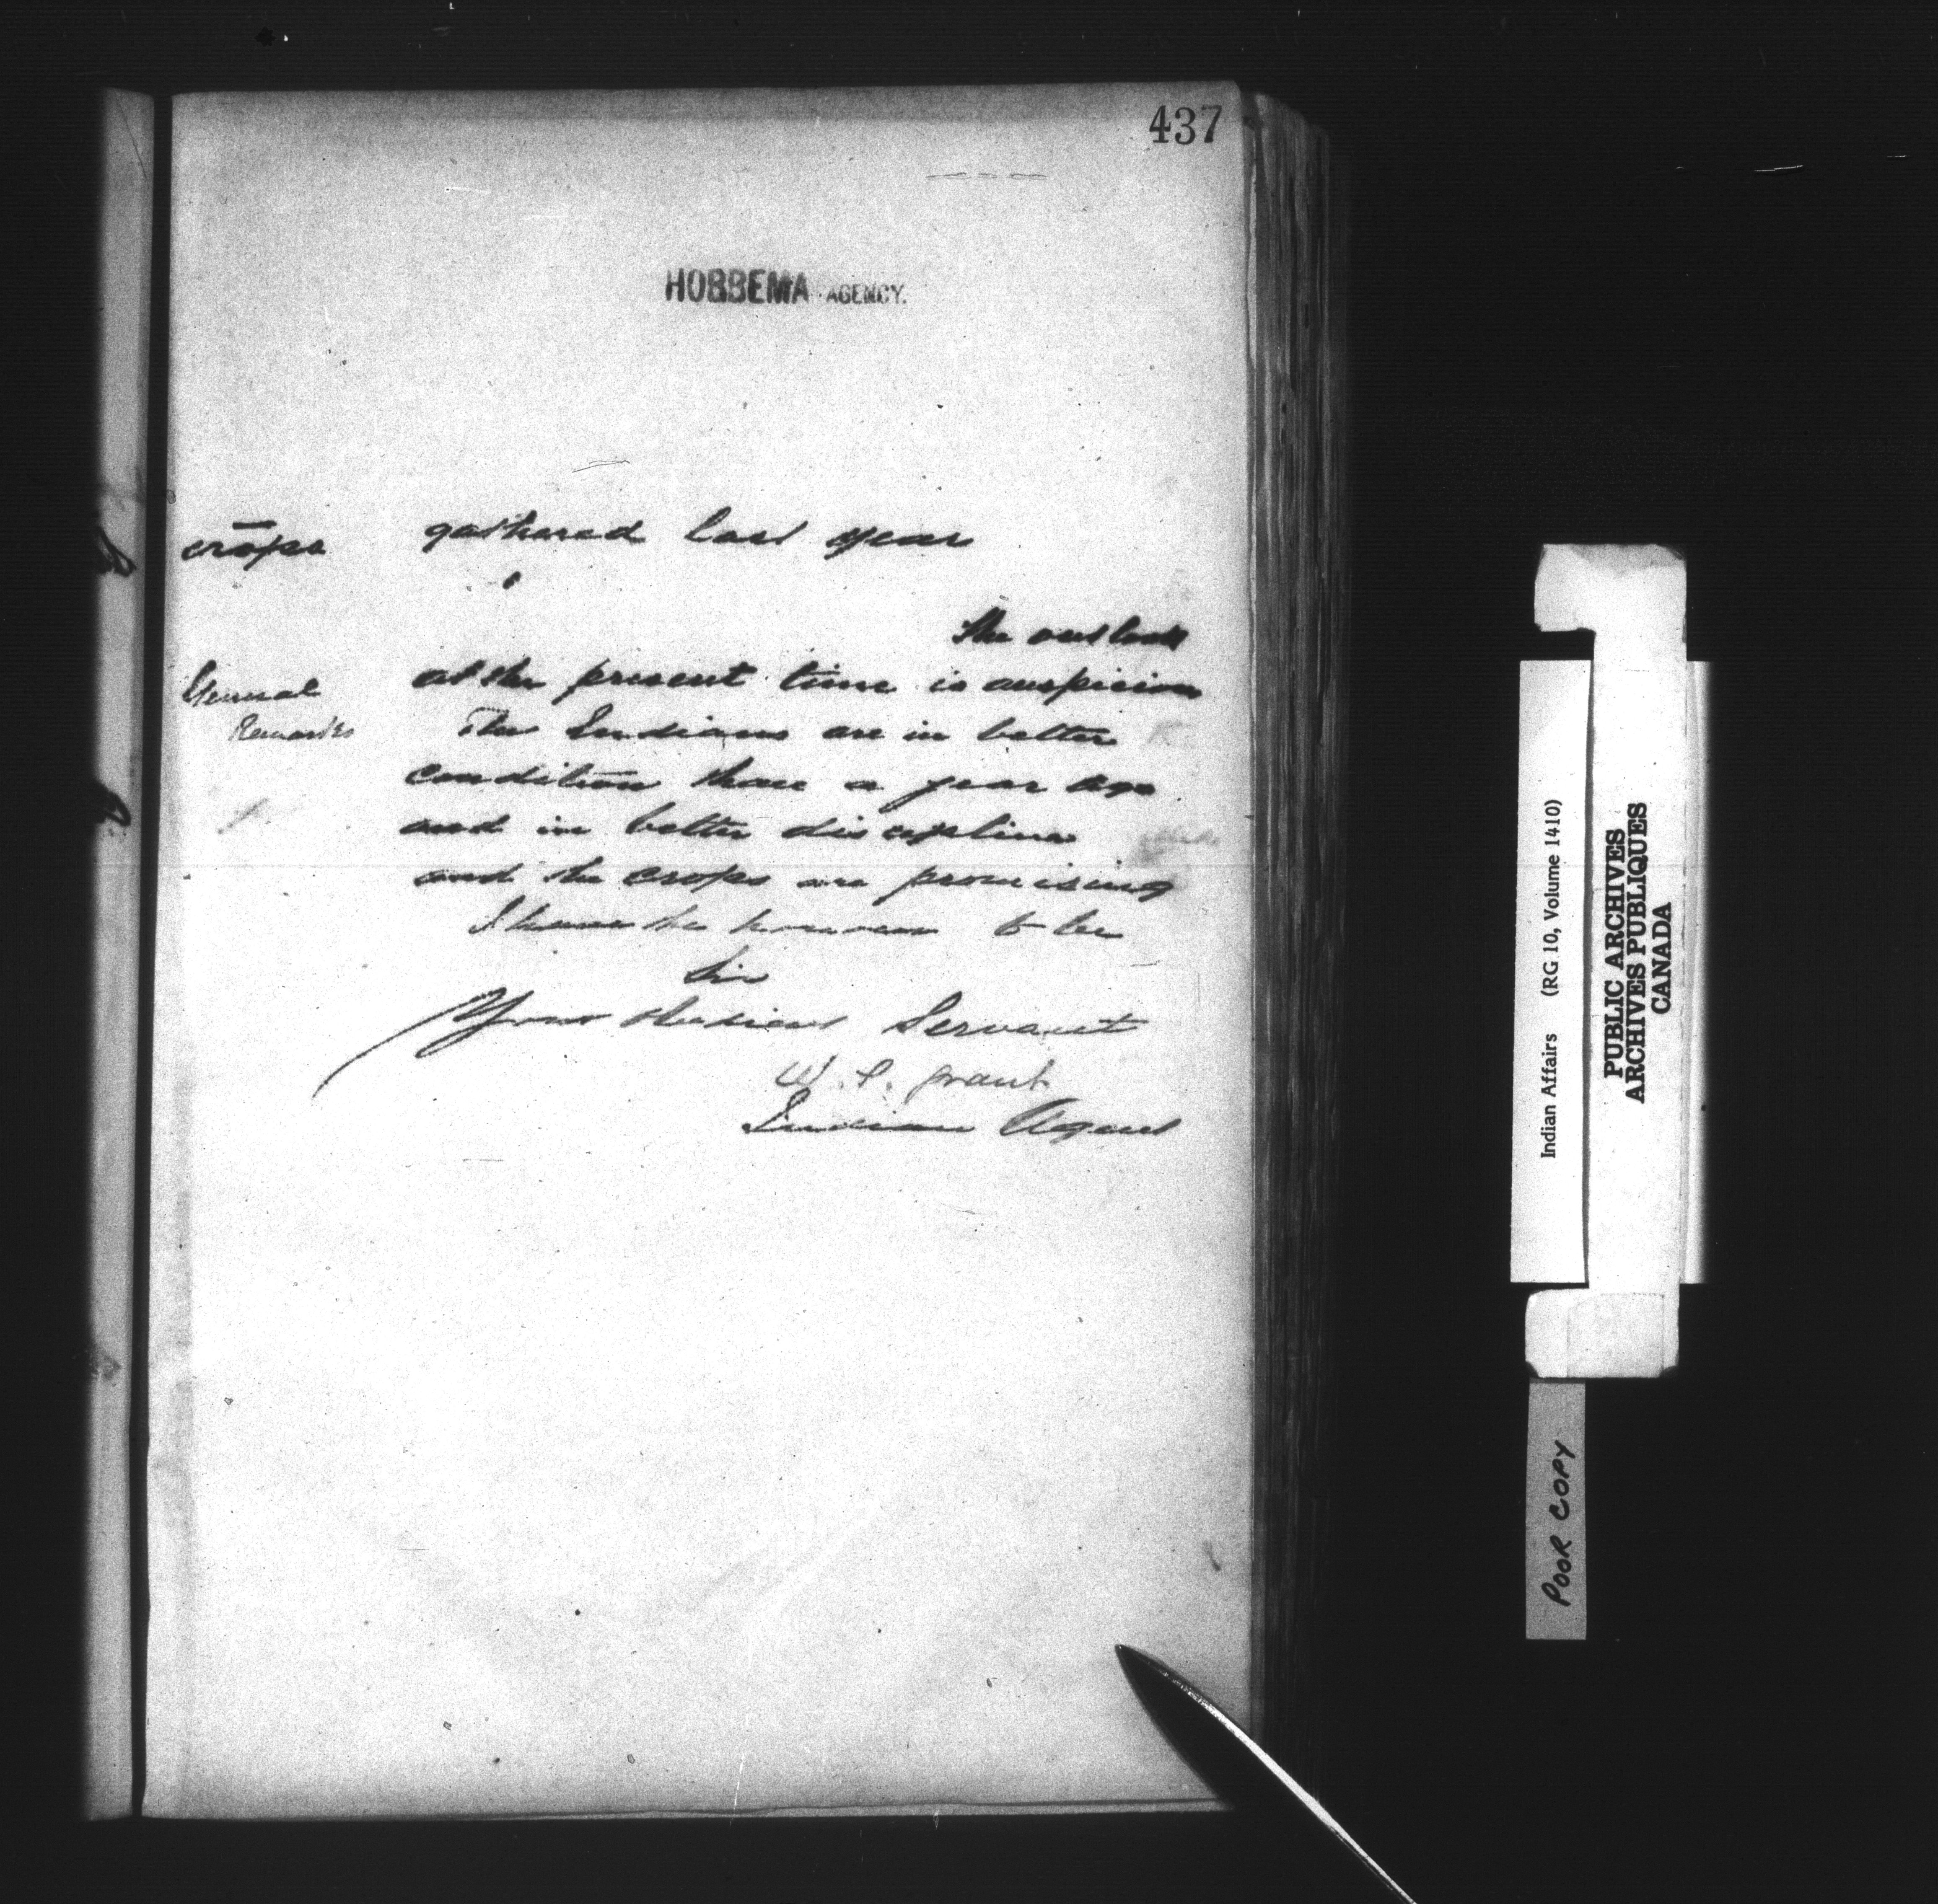 437
HOBBEMA AGENCY.
crops gathered last year
The outlook
General at the present time is auspicious
Remarks The Indians are in better
condition than a year ago
and in better discipline
and the crops are promising
I have the honour to be
Sir
Your obedient Servant
W. S. Grant
Indian Agent
Indian Affairs (RG 10, Volume 1410)
PUBLIC ARCHIVES
ARCHIVES PUBLIQUES
CANADA
POOR COPY